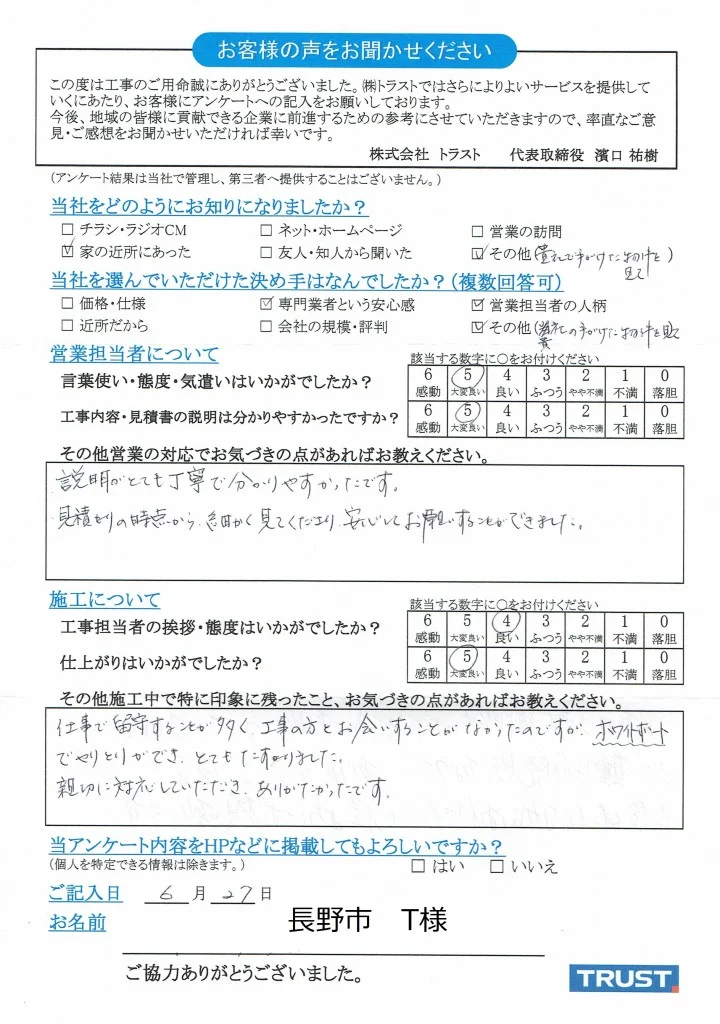 お客様の声をお聞かせください
この度は工事のご用命誠にありがとうございました。㈱トラストではさらによりよいサービスを提供して
いくにあたり、お客様にアンケートへの記入をお願いしております。
今後、地域の皆様に貢献できる企業に前進するための参考にさせていただきますので、率直なご意
見・ご感想をお聞かせいただければ幸いです。
株式会社 トラスト 代表取締役 濱口 祐樹
(アンケート結果は当社で管理し、第三者へ提供することはございません。)
当社をどのようにお知りになりましたか?
□ チラシ・ラジオCM □ ネット・ホームページ □ 営業の訪問
☑ 家の近所にあった □ 友人・知人から聞いた ☑ その他(貴社で手がけた物件を)
見て
当社を選んでいただけた決め手はなんでしたか?(複数回答可)
□ 価格・仕様 ☑ 専門業者という安心感 ☑ 営業担当者の人柄
□ 近所だから □ 会社の規模・評判 ☑ その他(貴社の手がけた物件を見て
営業担当者について
該当する数字に○をお付けください
言葉使い・態度・気遣いはいかがでしたか?
6 5 4 3 2 1 0
感動 大変良い 良い ふつう やや不満 不満 落胆
工事内容・見積書の説明は分かりやすかったですか?
6 5 4 3 2 1 0
感動 大変良い 良い ふつう やや不満 不満 落胆
その他営業の対応でお気づきの点があればお教えください。
説明がとても丁寧で分かりやすかったです。
見積もりの時点から、細かく見てくださり、安心してお願いすることができました。
施工について
該当する数字に○をお付けください
工事担当者の挨拶・態度はいかがでしたか?
6 5 4 3 2 1 0
感動 大変良い 良い ふつう やや不満 不満 落胆
仕上がりはいかがでしたか?
6 5 4 3 2 1 0
感動 大変良い 良い ふつう やや不満 不満 落胆
その他施工中で特に印象に残ったこと、お気づきの点があればお教えください。
仕事で留守することが多く、工事の方とお会いすることがなかったのですが、ホワイトボード
でやりとりができ、とてもたすかりました。
親切に対応していただき、ありがたかったです。
当アンケート内容をHPなどに掲載してもよろしいですか?
(個人を特定できる情報は除きます。)
□ はい □ いいえ
ご記入日 6 月 27 日
お名前 長野市 T様
ご協力ありがとうございました。
TRUST